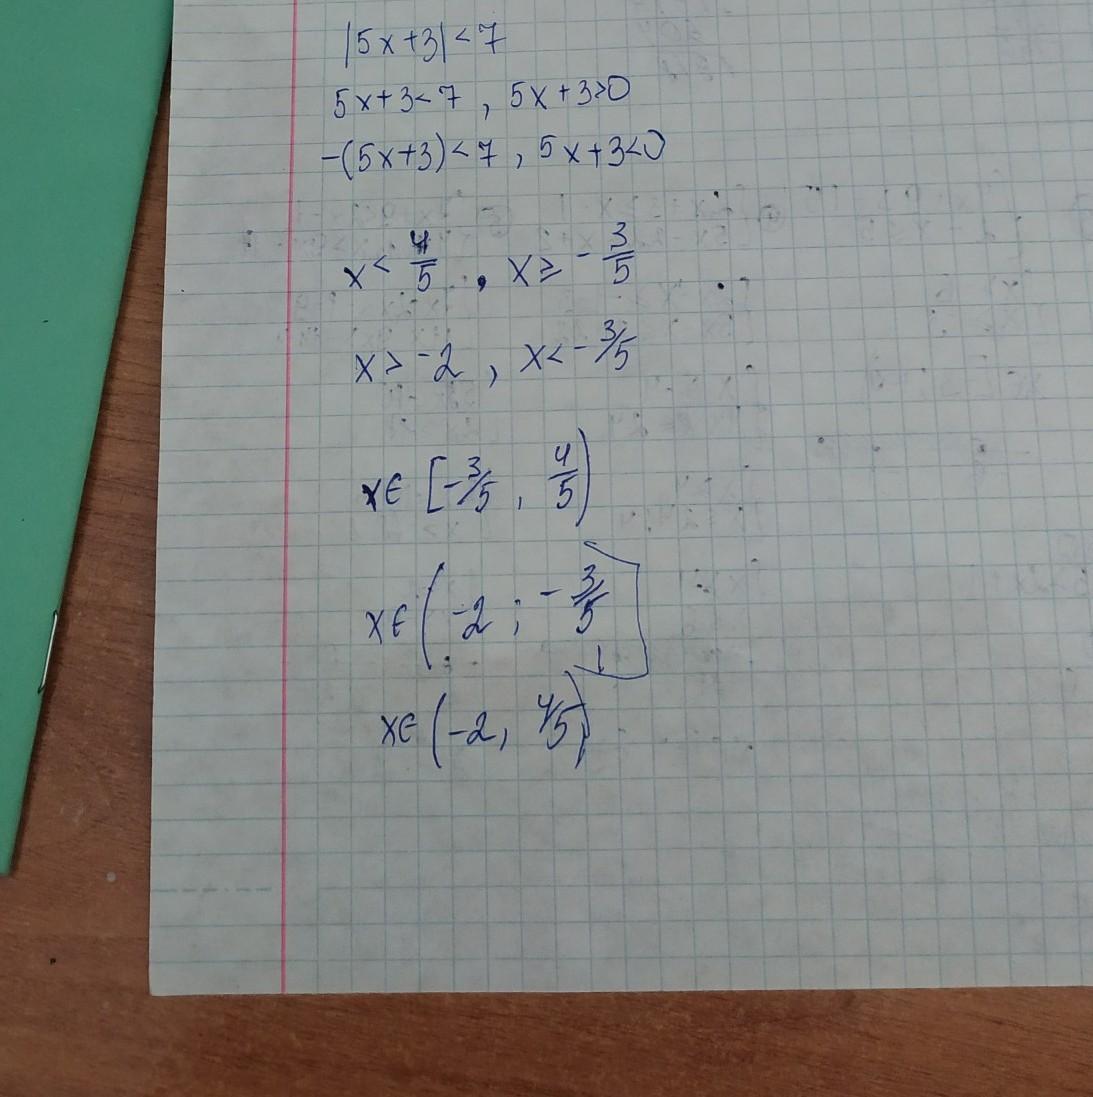 |5x+3|<7
5x+3<7 , 5x+3≥0
-(5x+3)<7 , 5x+3<0
x< 4/5 , x≥ - 3/5
x> -2 , x< - 3/5
x∈ [-3/5 , 4/5)
x∈ (-2 ; - 3/5
x∈ (-2, 4/5)